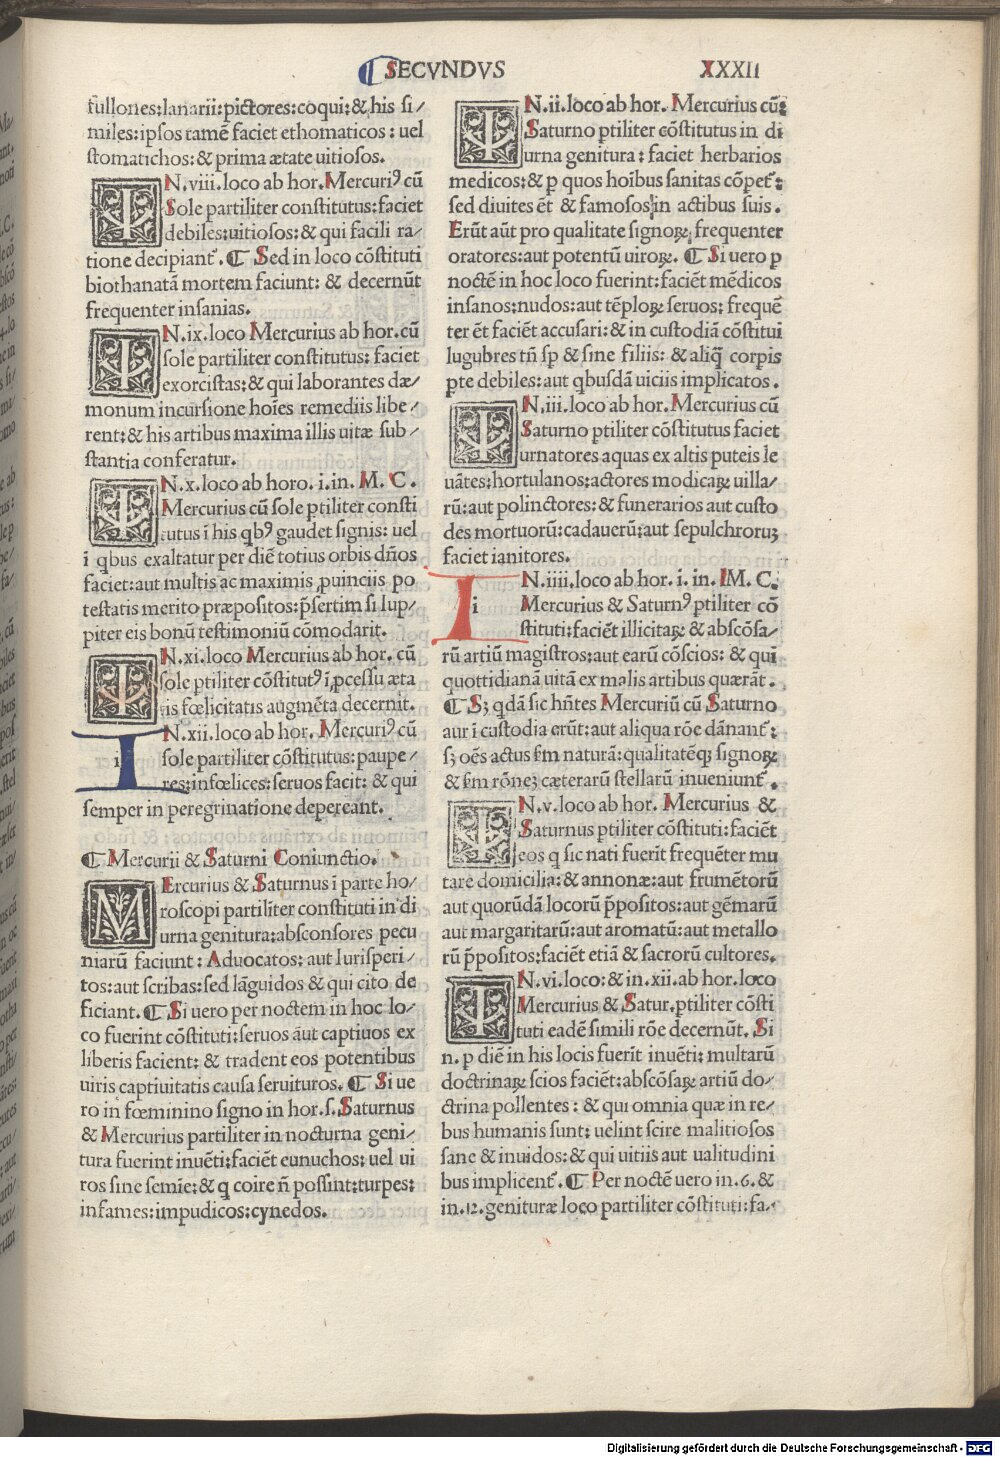 SECVNDVS
XXXII
fullones:lanarii:pictores:coqui:& his si/
miles:ipsos tamē faciet ethomaticos : uel
stomatichos:& prima ætate uitiosos.
IN.viii.loco ab hor.Mercuriꝰ cū
Sole partiliter constitutus:faciet
debiles:uitiosos:& qui facili ra/
tione decipiant᷑.¶ Sed in loco cōstituti
biothanatā mortem faciunt: & decernūt
frequenter insanias.
IN.ix.loco Mercurius ab hor.cū
sole partiliter constitutus: faciet
exorcistas:& qui laborantes dæ/
monum incursione hoīes remediis libe/
rent:& his artibus maxima illis uitæ sub/
stantia conferatur.
IN.x.loco ab horo.i.in. M. C.
Mercurius cū sole ptiliter consti
tutus ī his qbꝰ gaudet signis: uel
ī qbus exaltatur per diē totius orbis dños
faciet:aut multis ac maximis ,puinciis po
testatis merito præpositos:p̄sertim si Iup/
piter eis bonū testimoniū cōmodarit.
IN.xi.loco Mercurius ab hor. cū
sole ptiliter cōstitutꝰ ī,pcessu æta
tis fœlicitatis augmēta decernit.
iN.xii.loco ab hor. Mercuriꝰ cū
sole partiliter cōstitutus: paupe/
res:infœlices:seruos facit: & qui
semper in peregrinatione depereant.
¶ Mercurii & Saturni Coniunctio.
MErcurius & Saturnus ī parte ho/
roscopi partiliter constituti in di
urna genitura:absconsores pecu
niarū faciunt: Aduocatos: aut Iurisperi/
tos:aut scribas:sed lāguidos & qui cito de
ficiant.¶ Si uero per noctem in hoc lo/
co fuerint cōstituti:seruos āut captiuos ex
liberis facient: & tradent eos potentibus
uiris captiuitatis causa seruituros.¶ Si ue
ro in fœminino signo in hor.s.Saturnus
& Mercurius partiliter in nocturna geni/
tura fuerint inuēti:faciēt eunuchos: uel ui
ros sine semīe:& q coire ñ possint:turpes:
infames:impudicos:cynedos.
IN.ii.loco ab hor. Mercurius cū
Saturno ptiliter cōstitutus in di
urna genitura : faciet herbarios
medicos:& p quos hoībus sanitas cōpet᷑:
sed diuites ēt & famosos in actibus suis.
Erūt aūt pro qualitate signoꝝ, frequenter
oratores:aut potentū uiroꝝ. ¶ Si uero p
noctē in hoc loco fuerint: faciēt mēdicos
insanos:nudos:aut tēploꝝ seruos: frequē
ter ēt faciēt accusari:& in custodiā cōstitui
lugubres tñ sp & sine filiis: & aliq̄ corpis
pte debiles:aut qbusdā uiciis implicatos.
IN.iii.loco ab hor.Mercurius cū
Saturno ptiliter cōstitutus faciet
urnatores aquas ex altis puteis le
uātes:hortulanos:actores modicaꝝ uilla/
rū:aut polinctores:& funerarios aut custo
des mortuorū:cadauerū:aut sepulchroruꝫ
faciet ianitores.
iN.iiii.loco ab hor. i. in. IM. C.
Mercurius & Saturnꝰ ptiliter cō
stituti:faciēt illicitaꝝ & abscōsa/
rū artiū magistros:aut earū cōscios: & qui
quottidianā uitā ex malis artibus quærāt.
¶ Sꝫ qdā sic hñtes Mercuriū cū Saturno
aur ī custodia erūt:aut aliqua rōe dānant᷑:
sꝫ oēs actus fm naturā:qualitatēqꝫ signoꝝ
& fm rōneꝫ cæterarū stellarū inueniunt᷑.
IN.v.loco ab hor. Mercurius &
Saturnus ptiliter cōstituti: faciēt
eos q sic nati fuerit frequēter mu
tare domicilia:& annonæ:aut frumētorū
aut quorūdā locorū p̄positos:aut gēmarū
aut margaritarū:aut aromatū:aut metallo
rū p̄positos:faciēt etiā & sacrorū cultores.
IN.vi.loco:& in.xii.ab hor.loco
Mercurius & Satur.ptiliter cōsti
tuti eadē simili rōe decernūt. Si
n. p diē in his locis fuerīt inuēti: multarū
doctrinaꝝ scios faciēt:abscōsaꝝ artiū do/
ctrina pollentes : & qui omnia quæ in re/
bus humanis sunt: uelint scire malitiosos
sane & inuidos:& qui uitiis aut ualitudini
bus implicent᷑.¶ Per noctē uero in.6.&
in.12.genituræ loco partiliter cōstituti:fa/
Digitalisierung gefördert durch die Deutsche Forschungsgemeinschaft - DFG